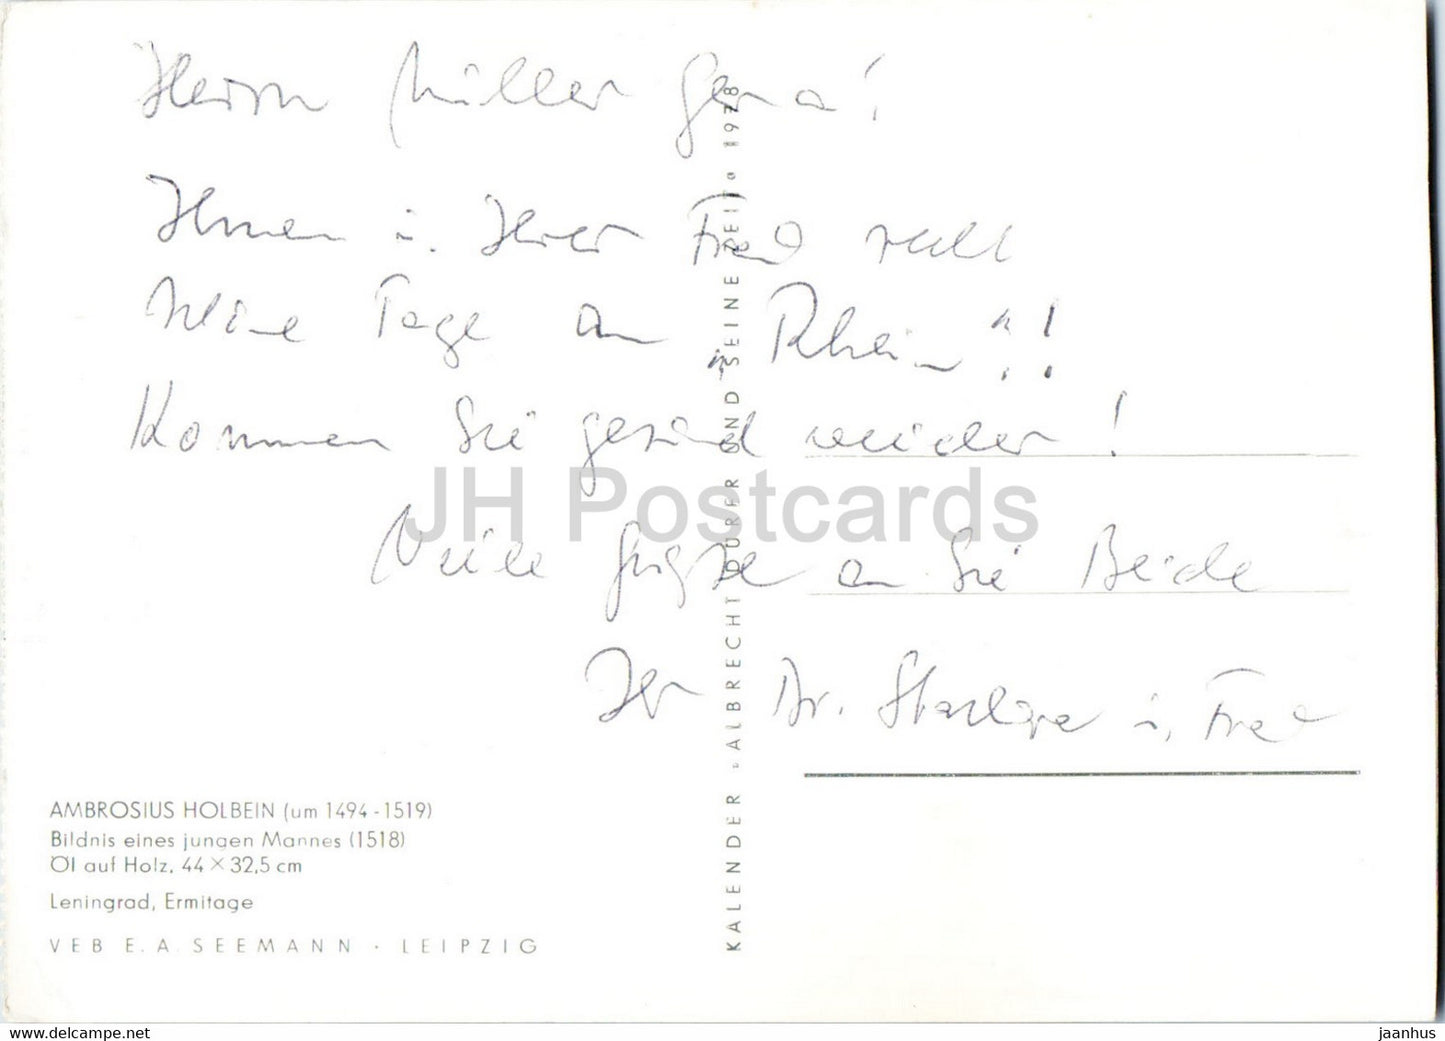 Herrn Müller Gera!
Ihnen u. Ihrer Frau recht
schöne Tage am
"Rhein"!!
Kommen Sie gesund wieder!
Viele Grüße an Sie Beide
Ihr Dr. u. Frau
AMBROSIUS HOLBEIN (um 1494-1519)
Bildnis eines jungen Mannes (1518)
Öl auf Holz, 44 × 32,5 cm
Leningrad, Ermitage
VEB E. A. SEEMANN · LEIPZIG
KALENDER »ALBRECHT DÜRER UND SEINE ZEIT« 1978
JH Postcards
https://www.delcampe.net
jaanhus